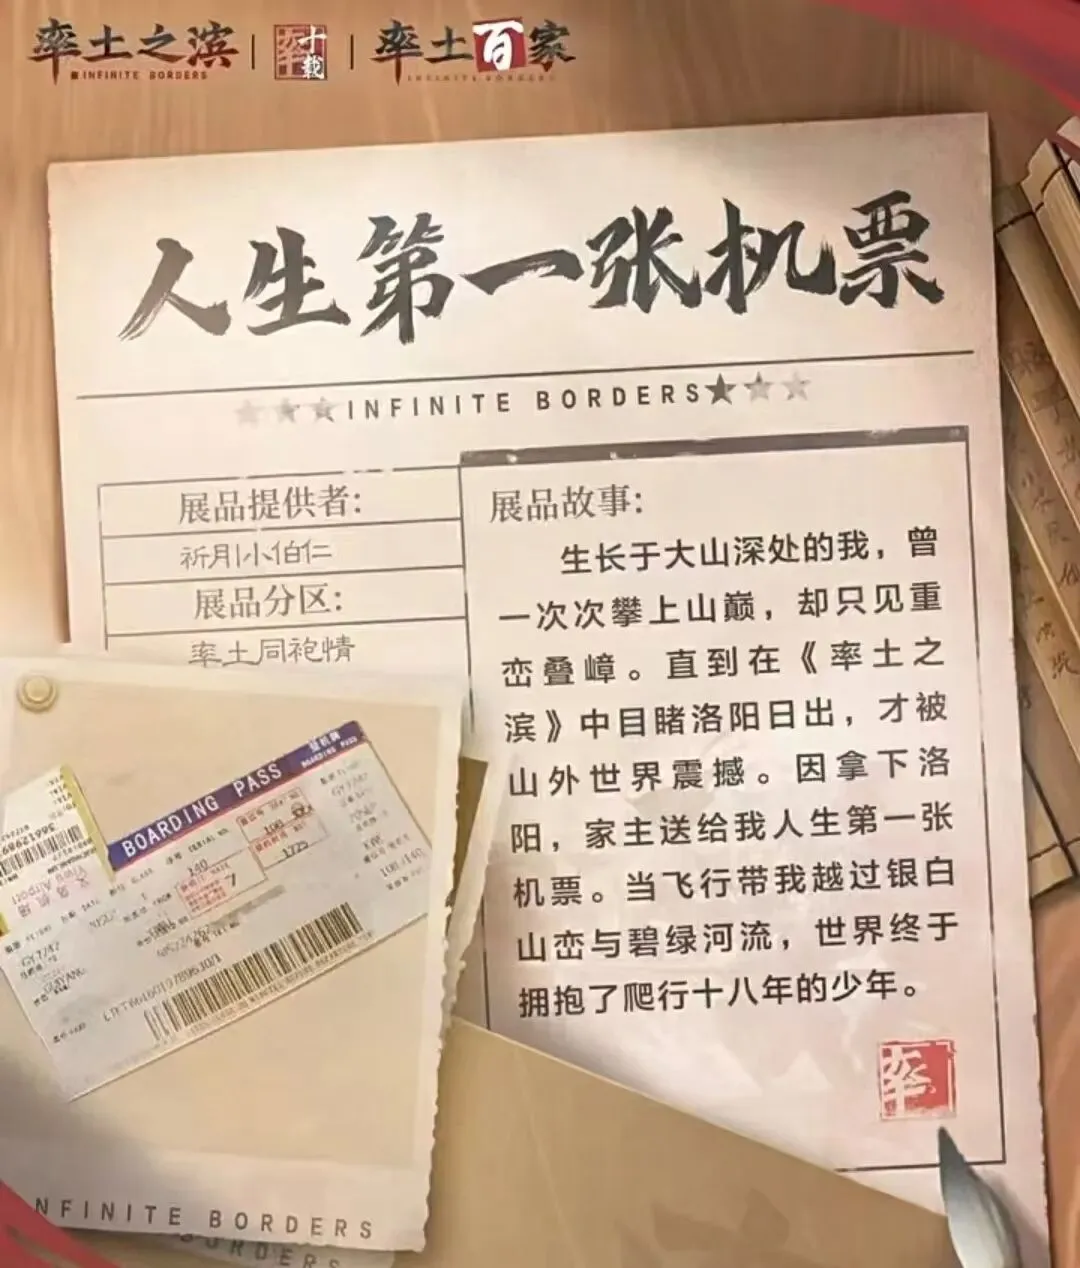 率土之滨
INFINITE BORDERS
率土
十载
率土百家
INFINITE BORDERS
人生第一张机票
INFINITE BORDERS
展品提供者:
祈月小伯仁
展品分区:
率土同袍情
展品故事:
生长于大山深处的我，曾
一次次攀上山巅，却只见重
峦叠嶂。直到在《率土之
滨》中目睹洛阳日出，才被
山外世界震撼。因拿下洛
阳，家主送给我人生第一张
机票。当飞行带我越过银白
山峦与碧绿河流，世界终于
拥抱了爬行十八年的少年。
率土
BOARDING PASS
登机牌
BOARDING PASS
140
1725
100/140
NFINITE BORDERS
BORDERS